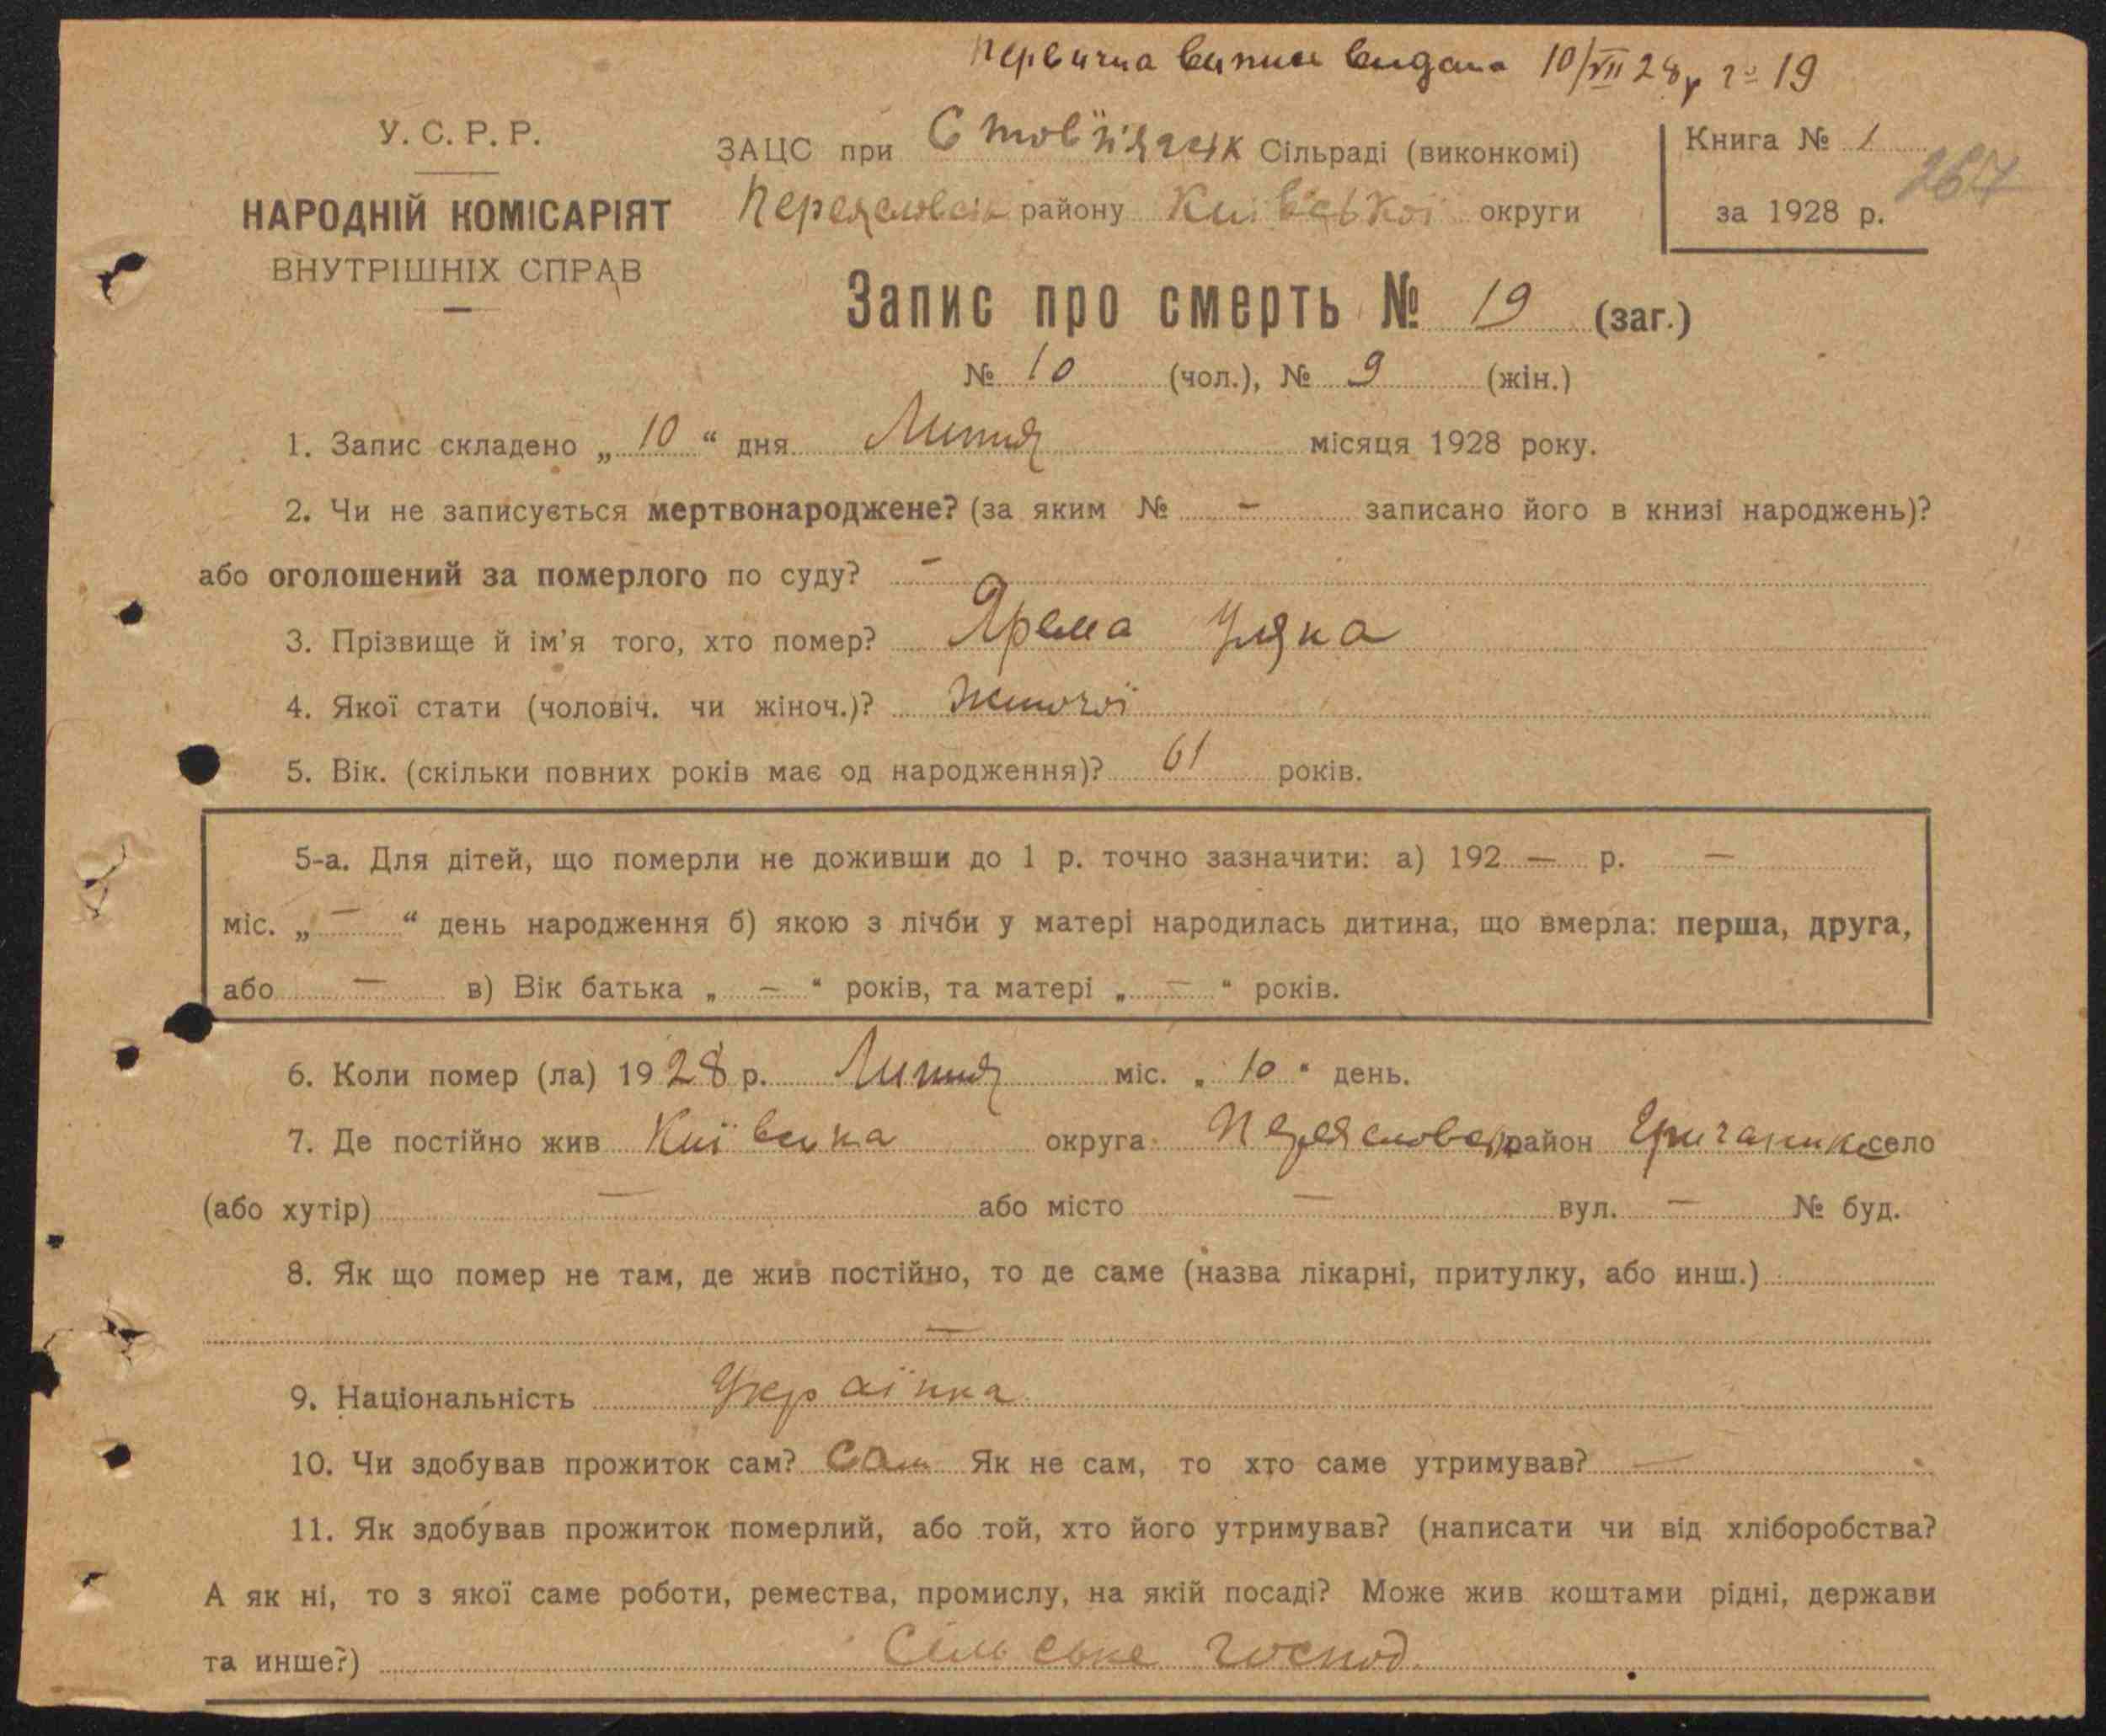 Первична випис видана 10/VII 28 р № 19
У. С. Р. Р.
НАРОДНІЙ КОМІСАРІЯТ
ВНУТРІШНІХ СПРАВ
ЗАЦС при Стовп'ягськ Сільраді (виконкомі)
Переяславськ району Київської округи
Книга № 1
за 1928 р.
267
Запис про смерть № 19 (заг.)
№ 10 (чол.), № 9 (жін.)
1. Запис складено „ 10 “ дня Липня місяця 1928 року.
2. Чи не записується мертвонароджене? (за яким № — записано його в книзі народжень)?
або оголошений за померлого по суду? —
3. Прізвище й ім'я того, хто помер? Ярема Уляна
4. Якої стати (чоловіч. чи жіноч.)? Жіночої
5. Вік. (скільки повних років має од народження)? 61 років.
5-а. Для дітей, що померли не доживши до 1 р. точно зазначити: а) 192 — р. —
міс. „ — “ день народження б) якою з лічби у матері народилась дитина, що вмерла: перша, друга,
або — в) Вік батька „ — “ років, та матері „ — “ років.
6. Коли помер (ла) 1928 р. Липня міс. „ 10 “ день.
7. Де постійно жив Київська округа район село
(або хутір) — або місто — вул. — № буд.
8. Як що помер не там, де жив постійно, то де саме (назва лікарні, притулку, або инш.)
—
9. Національність Українка
10. Чи здобував прожиток сам? Сам Як не сам, то хто саме утримував? —
11. Як здобував прожиток померлий, або той, хто його утримував? (написати чи від хліборобства?
А як ні, то з якої саме роботи, ремества, промислу, на якій посаді? Може жив коштами рідні, держави
та инше?) Сільське господ.